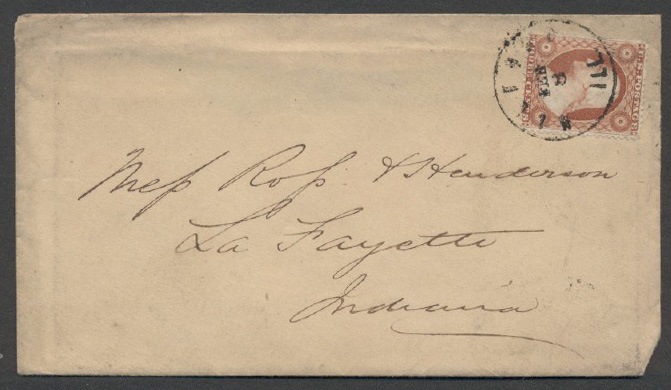 ILL
Mess Ross & Henderson
La Fayette
Indiana